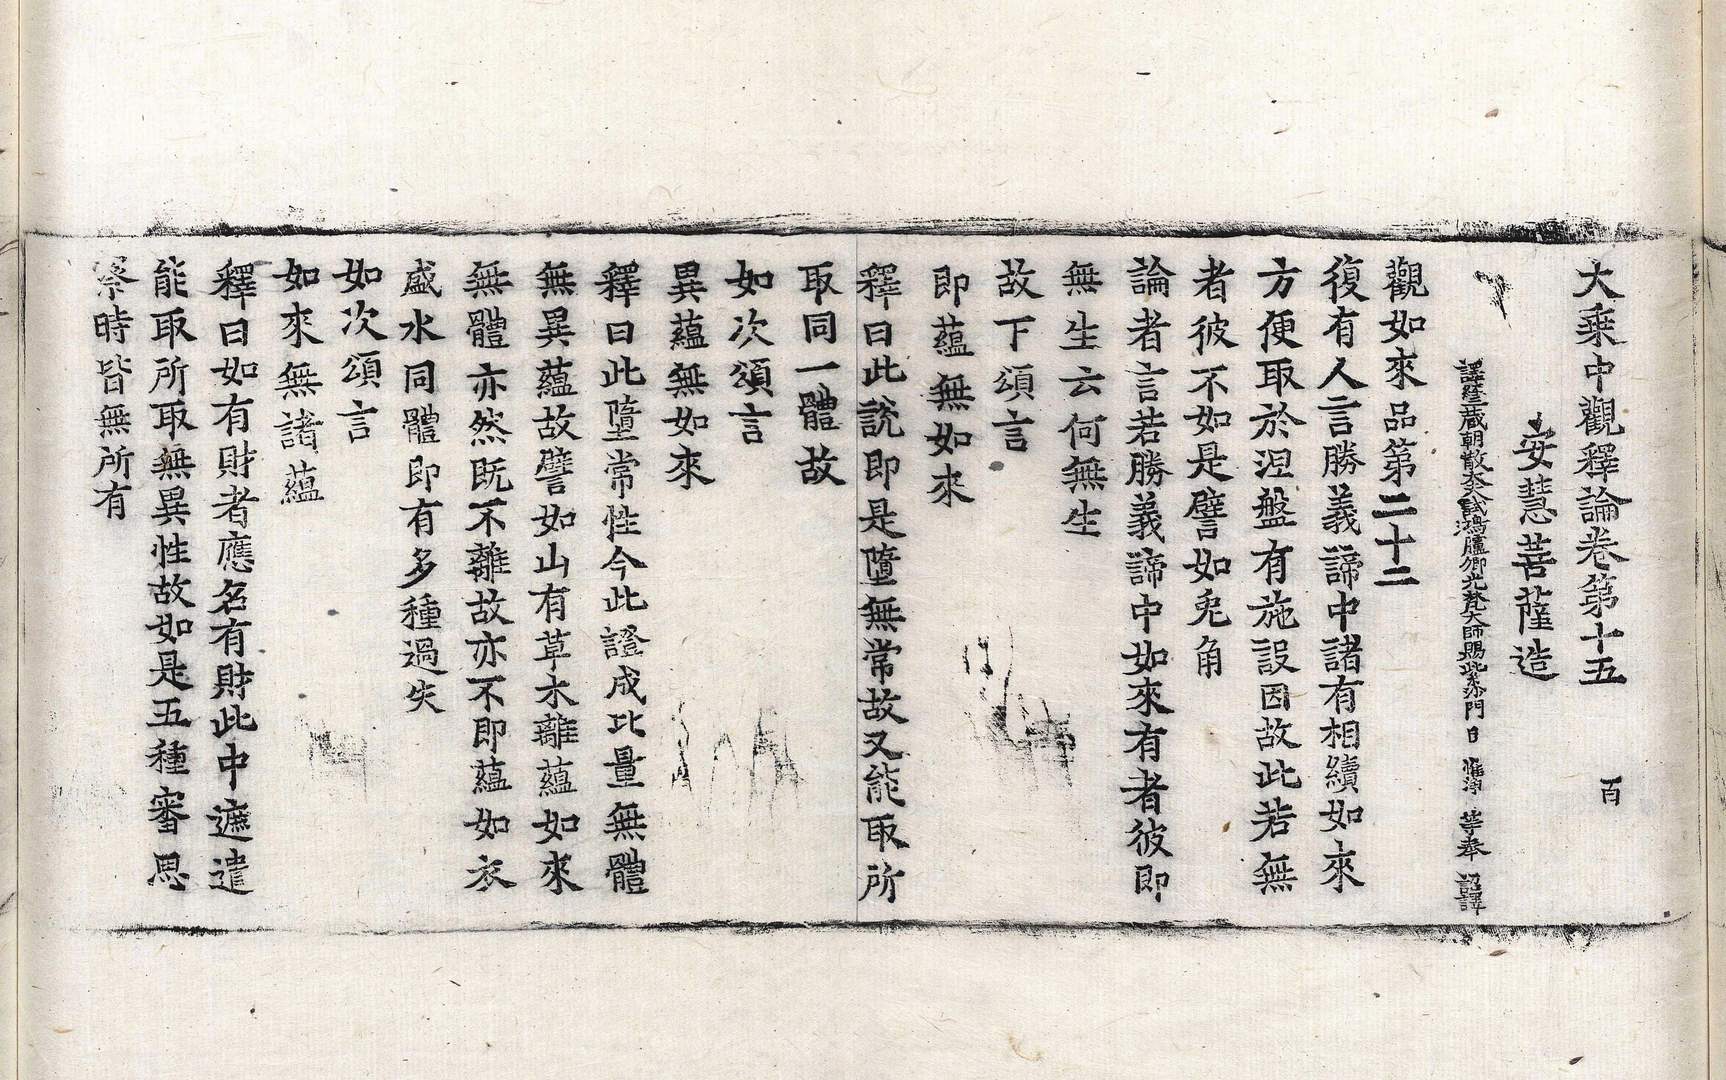 大乘中觀釋論卷第十五　百
安慧菩薩造
譯經三藏朝散大夫試鴻臚卿光梵大師賜紫沙門臣惟淨等奉　詔譯
觀如來品第二十二
復有人言勝義諦中諸有相續如來
方便取於涅盤有施設因故此若無
者彼不如是譬如兎角
論者言若勝義諦中如來有者彼即
無生云何無生
故下頌言
即蘊無如來
釋曰此說即是墮無常故又能取所
取同一體故
如次頌言
異蘊無如來
釋曰此墮常性今此證成比量無體
無異蘊故譬如山有草木離蘊如來
無體亦然既不離故亦不即蘊如衣
盛水同體即有多種過失
如次頌言
如來無諸蘊
釋曰如有財者應名有財此中遮遣
能取所取無異性故如是五種審思
察時皆無所有